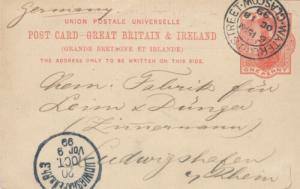 Germany
UNION POSTALE UNIVERSELLE
POST CARD-GREAT BRITAIN & IRELAND
(GRANDE BRETAGNE ET IRLANDE)
THE ADDRESS ONLY TO BE WRITTEN ON THIS SIDE.
GLASGOW
ONE PENNY
Chem: Fabrik für
Leim & Dünger
(Zimmermann)
Ludwigshafen
a/Rhein
LUDWIGSHAFEN a. Rh
20
OCT.
Vor 9
99